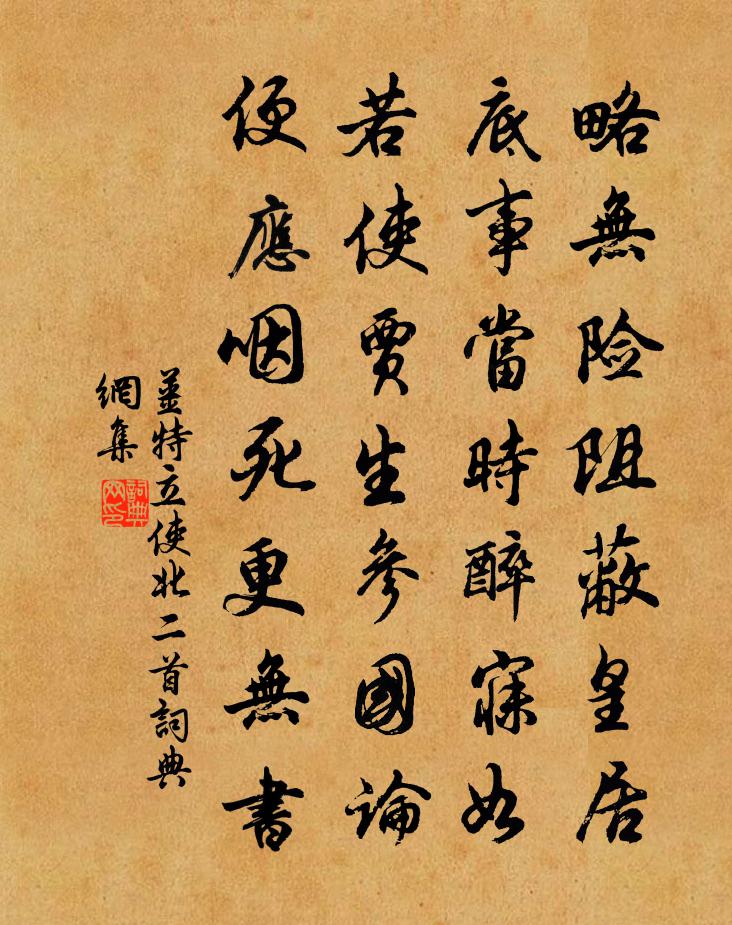 略無險阻蔽皇居
底事當時醉寐如
若使賈生參國論
便應咽死更無書
薑特立使北二首詞典
網集
詞典
网印